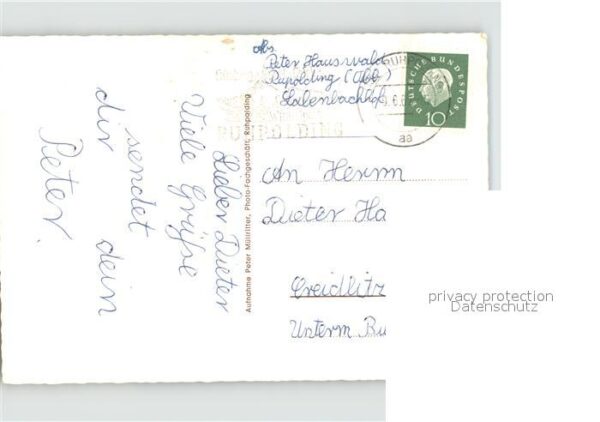 Abs
Peter Hauswald
Rupolding (Obb)
DEUTSCHE BUNDESPOST
10
RUHPOLDING
aa
Lieber Dieter
Viele Grüße
sendet
dir dein
Peter.
Aufnahme Peter Müllritter, Photo-Fachgeschäft, Ruhpolding
An Herrn
Dieter Ha
Creidlitz
Unterm Bu
privacy protection
Datenschutz